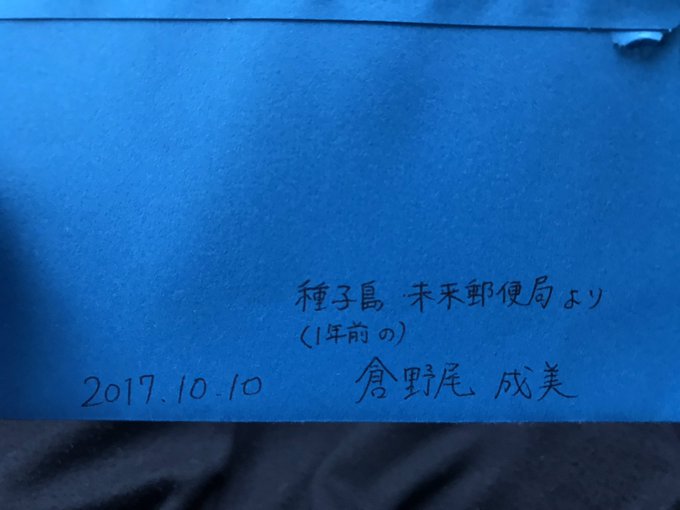 種子島 未来郵便局より
(1年前の)
2017.10.10 倉野尾 成美